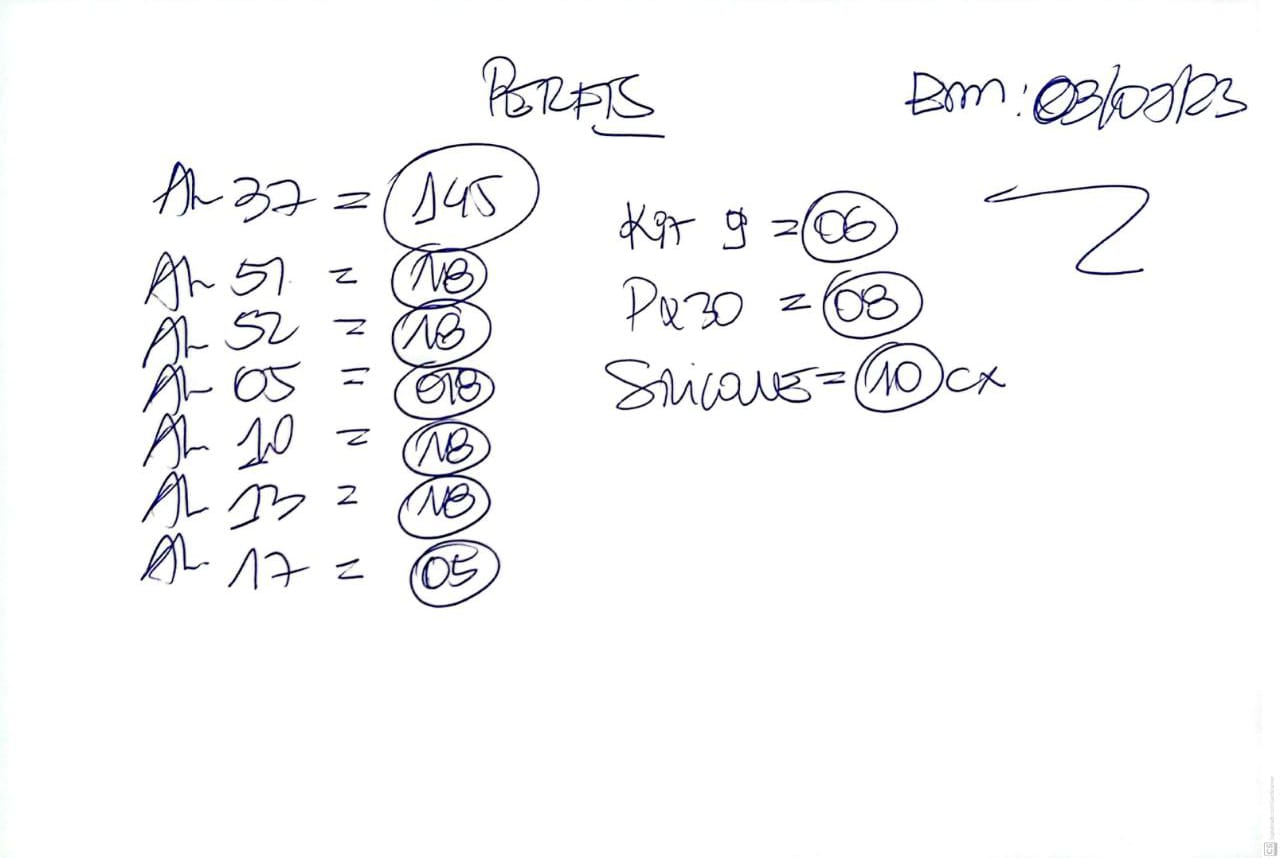 PERFIS
Em: 03/09/23
AL 37 = 145
AL 51 = 18
AL 52 = 18
AL 05 = 018
AL 10 = 18
AL 13 = 18
AL 17 = 05
Kit 9 = 06
PU 30 = 08
SILICONE = 10 CX
CS